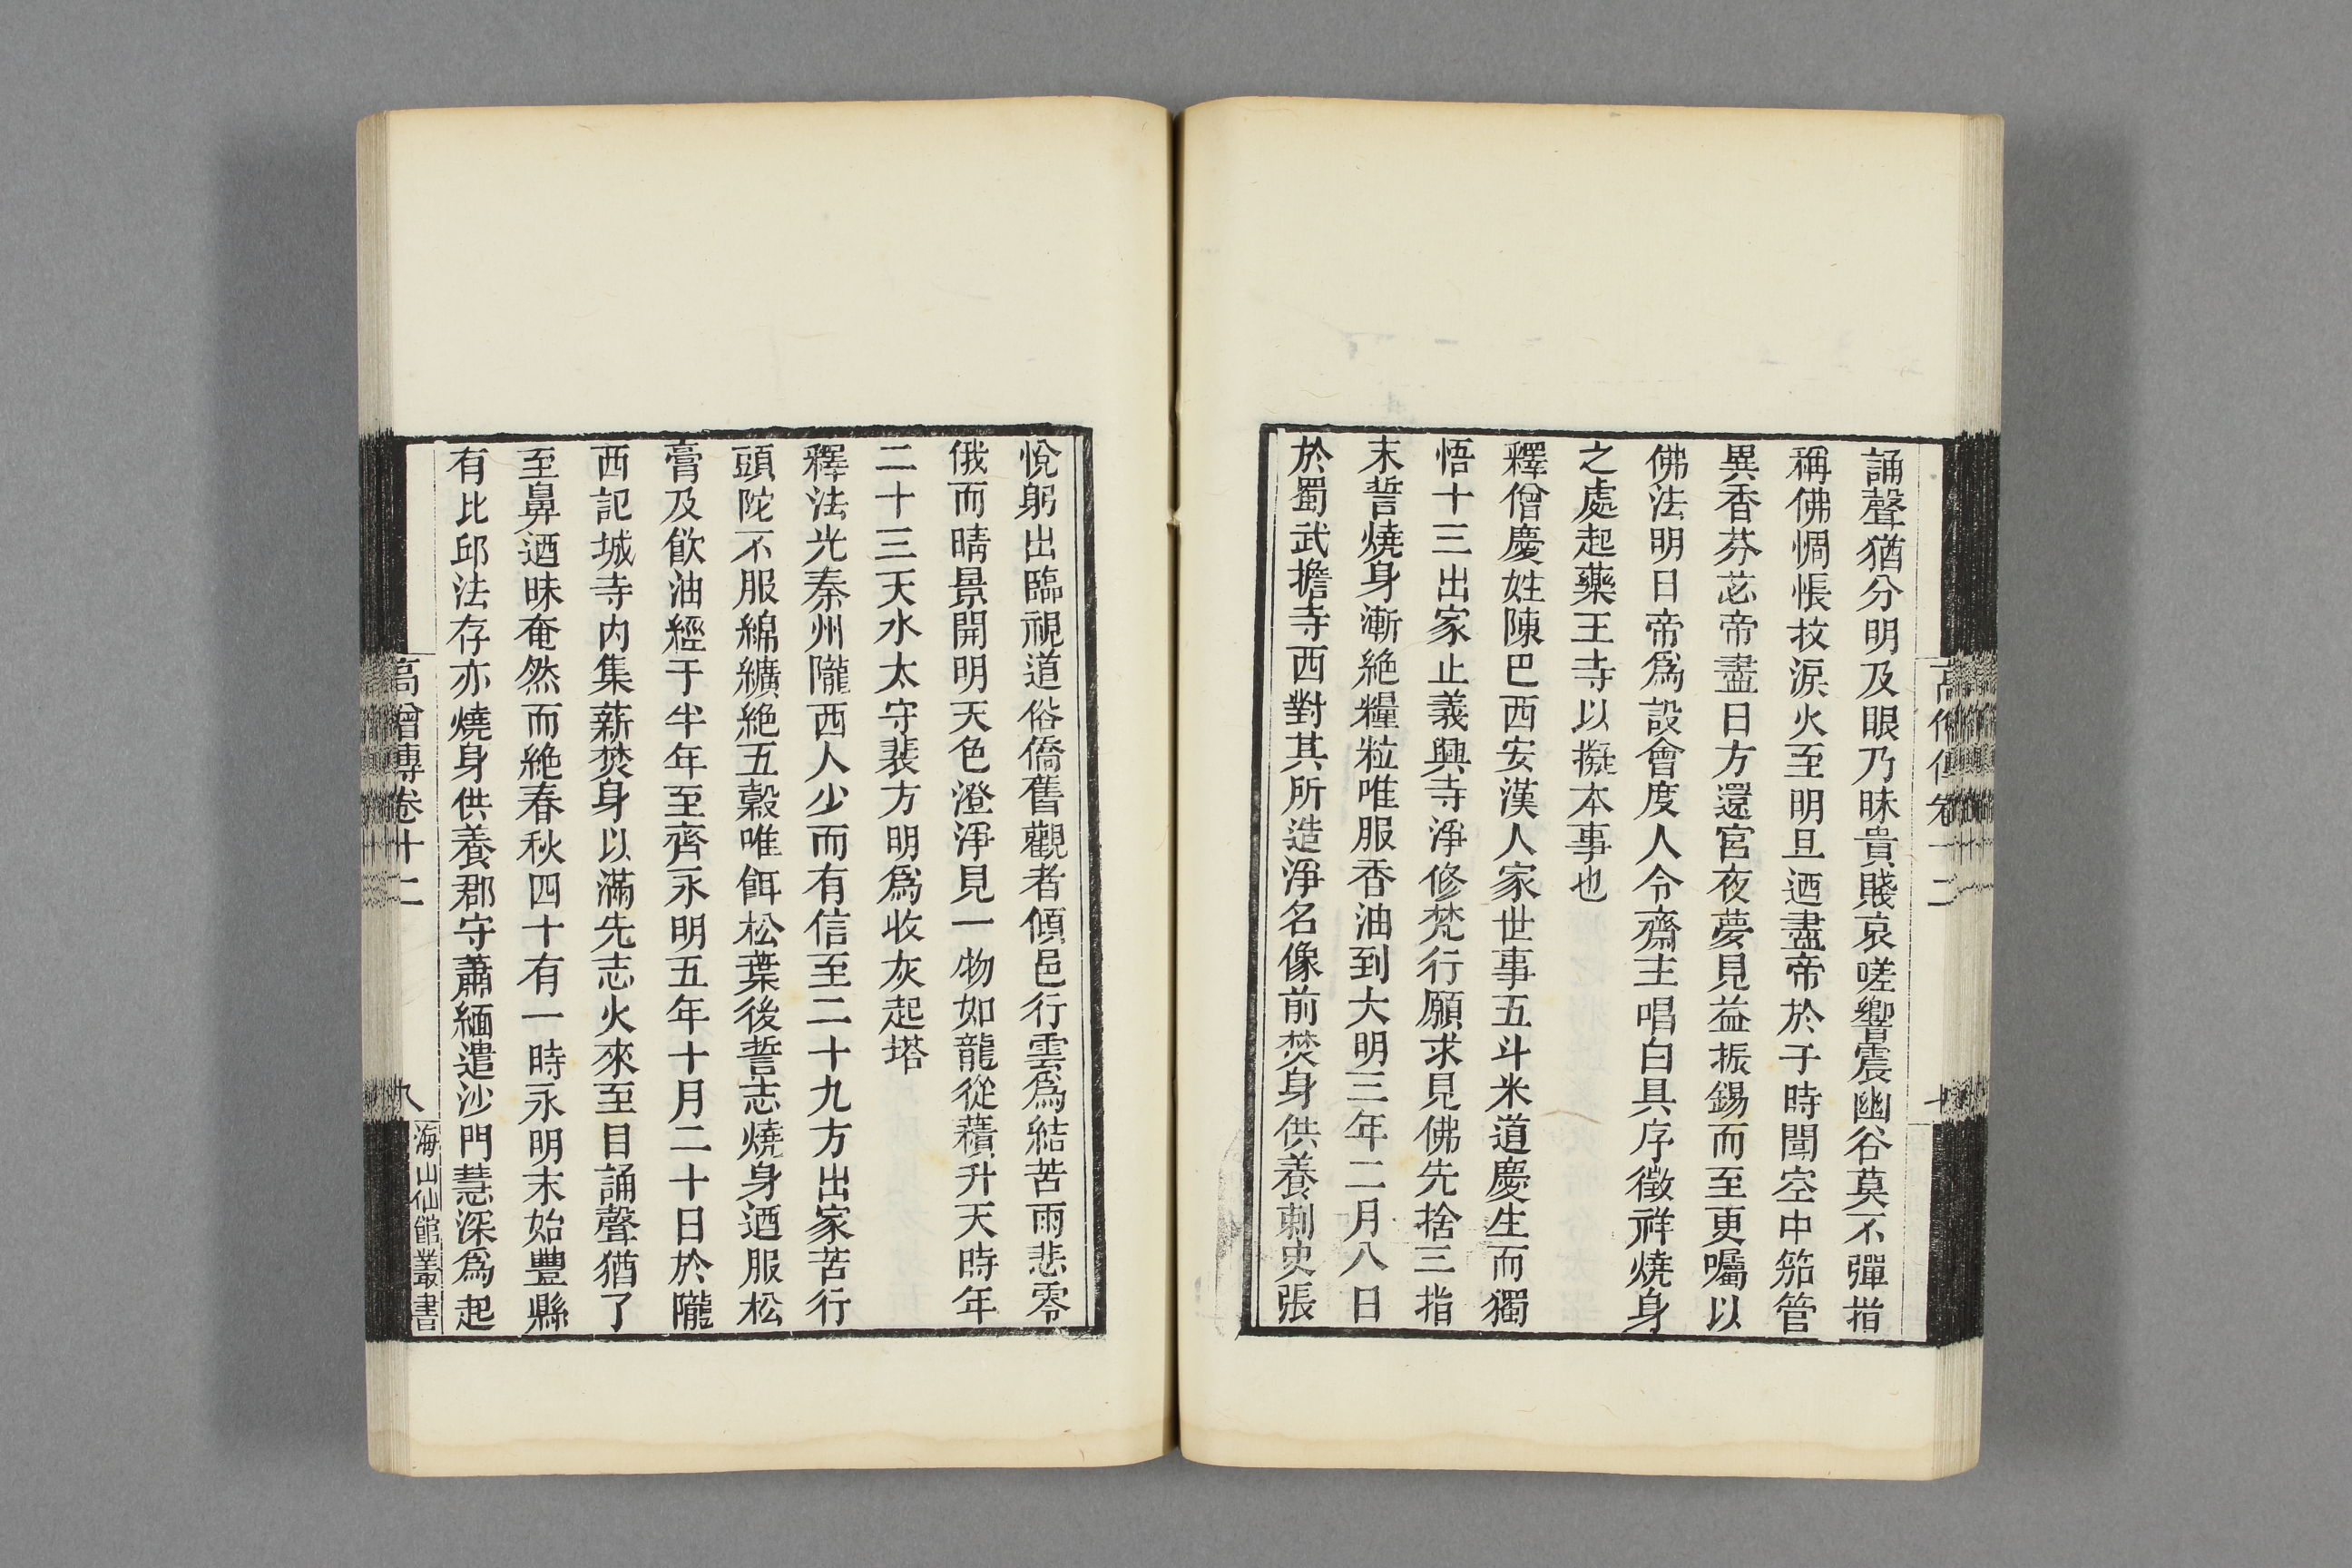 誦聲猶分明及眼乃昧貴賤哀嗟響震幽谷莫不彈指
稱佛惆悵抆淚火至明旦迺盡帝於于時聞空中笳管
異香芬苾帝盡日方還宮夜夢見益振錫而至更囑以
佛法明日帝爲設會度人令齋主唱白具序徵祥燒身
之處起藥王寺以擬本事也
釋僧慶姓陳巴西安漢人家世事五斗米道慶生而獨
悟十三出家止義興寺淨修梵行願求見佛先捨三指
末誓燒身漸絶糧粒唯服香油到大明三年二月八日
於蜀武擔寺西對其所造淨名像前焚身供養刺史張
悅躬出臨視道俗僑舊觀者傾邑行雲爲結苦雨悲零
俄而晴景開明天色澄淨見一物如龍從𧂐升天時年
二十三天水太守裴方明爲收灰起塔
釋法光秦州隴西人少而有信至二十九方出家苦行
頭陀不服綿纊絶五穀唯餌松葉後誓志燒身迺服松
膏及飮油經于半年至齊永明五年十月二十日於隴
西記城寺内集薪焚身以滿先志火來至目誦聲猶了
至鼻迺昧奄然而絶春秋四十有一時永明末始豐縣
有比邱法存亦燒身供養郡守蕭緬遣沙門慧深爲起
高僧傳卷十二
八
海山仙館叢書